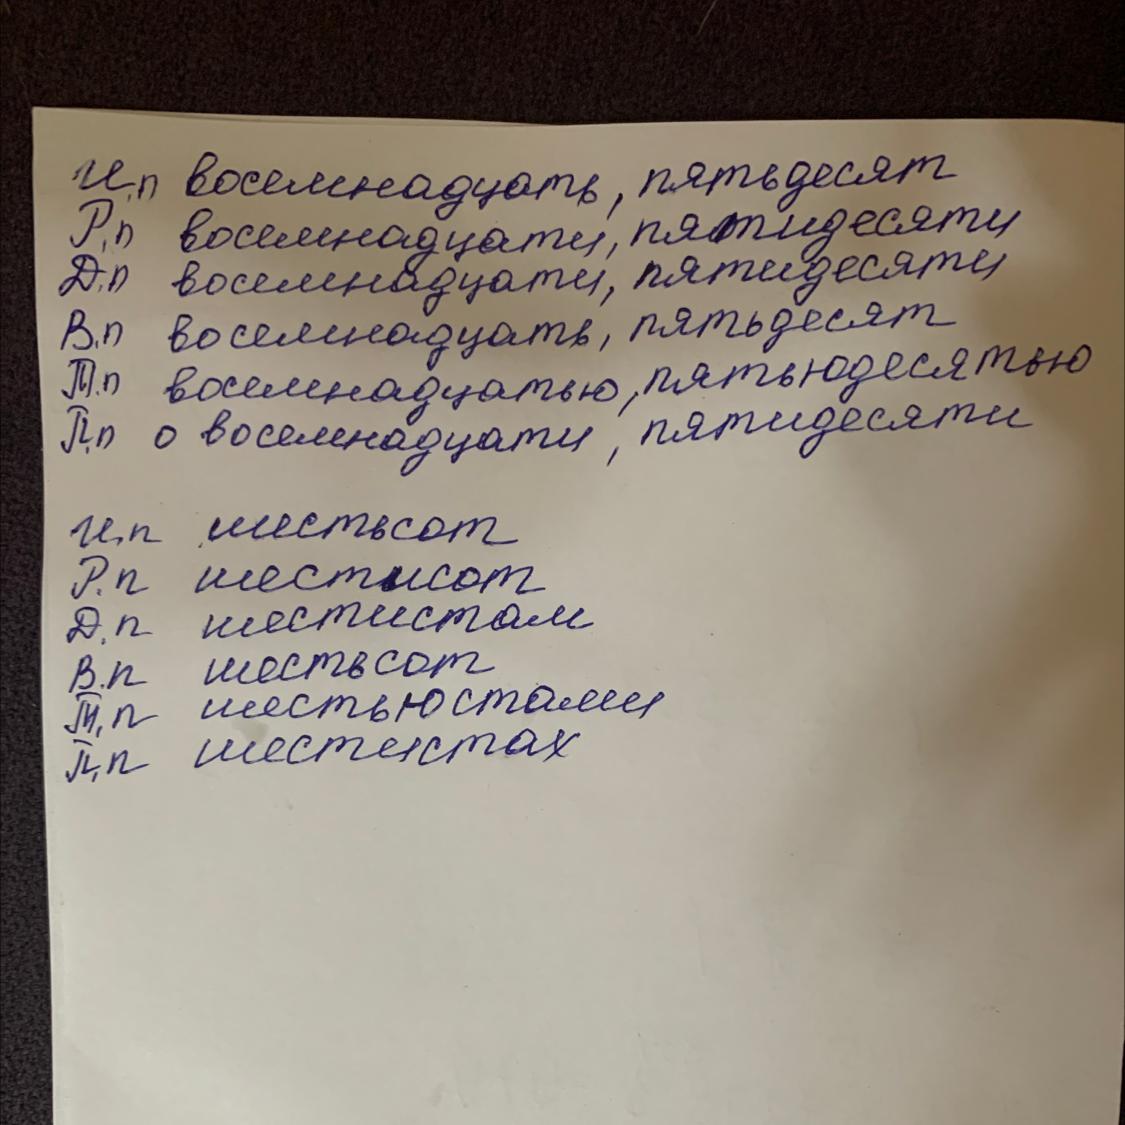 И.п восемнадцать, пятьдесят
Р.п восемнадцати, пятидесяти
Д.п восемнадцати, пятидесяти
В.п восемнадцать, пятьдесят
Т.п восемнадцатью, пятьюдесятью
П.п о восемнадцати, пятидесяти
И.п шестьсот
Р.п шестисот
Д.п шестистам
В.п шестьсот
Т.п шестьюстами
П.п шестистах